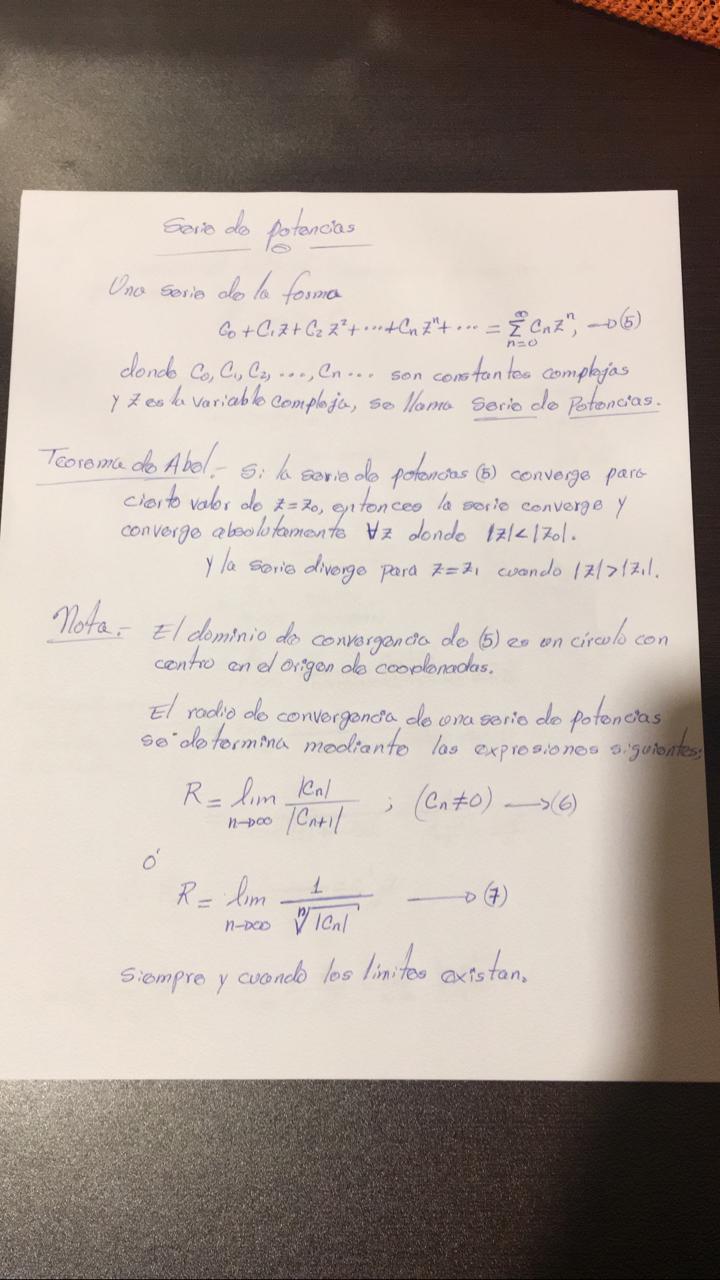 Serie de potencias
Una serie de la forma
C₀ + C₁z + C₂z² + ... + Cₙzⁿ + ... = ∑_{n=0}^{∞} Cₙzⁿ, → (5)
donde C₀, C₁, C₂, ..., Cₙ ... son constantes complejas
y z es la variable compleja, se llama Serie de Potencias.
Teorema de Abel.- Si la serie de potencias (5) converge para
cierto valor de z = z₀, entonces la serie converge y
converge absolutamente ∀z donde |z| < |z₀|.
y la serie diverge para z = z₁ cuando |z| > |z₁|.
Nota.- El dominio de convergencia de (5) es un círculo con
centro en el origen de coordenadas.
El radio de convergencia de una serie de potencias
se determina mediante las expresiones siguientes:
R = lim_{n→∞} |Cₙ| / |Cₙ₊₁| ; (Cₙ ≠ 0) → (6)
ó
R = lim_{n→∞} 1 / ⁿ√|Cₙ| → (7)
siempre y cuando los límites existan.